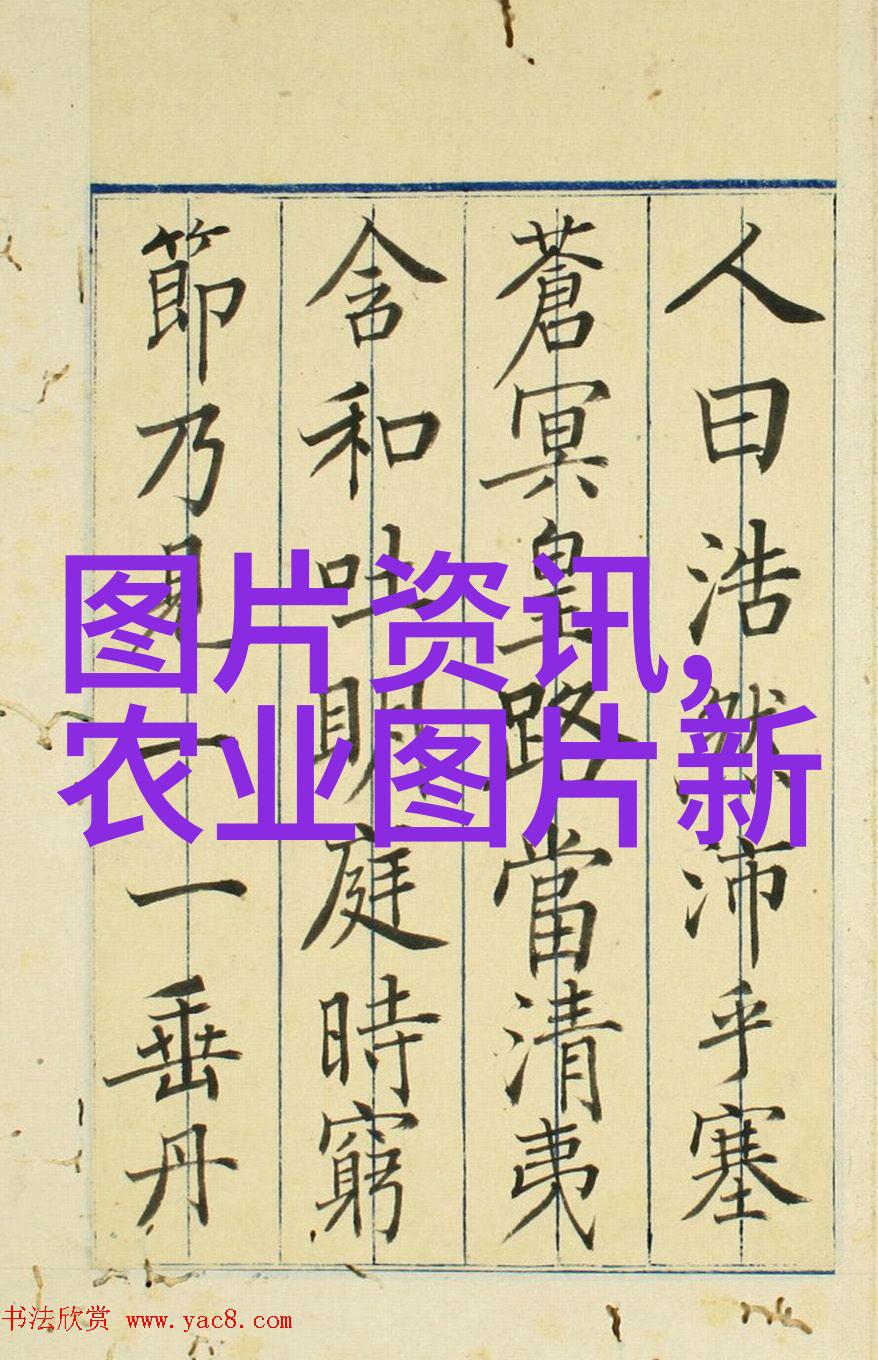 人曰浩然沛乎塞
蒼冥皇路當清夷
含和吐明庭時窮
節乃見一一垂丹
图片资讯,
农业图片新
书法欣赏 www.yac8.com